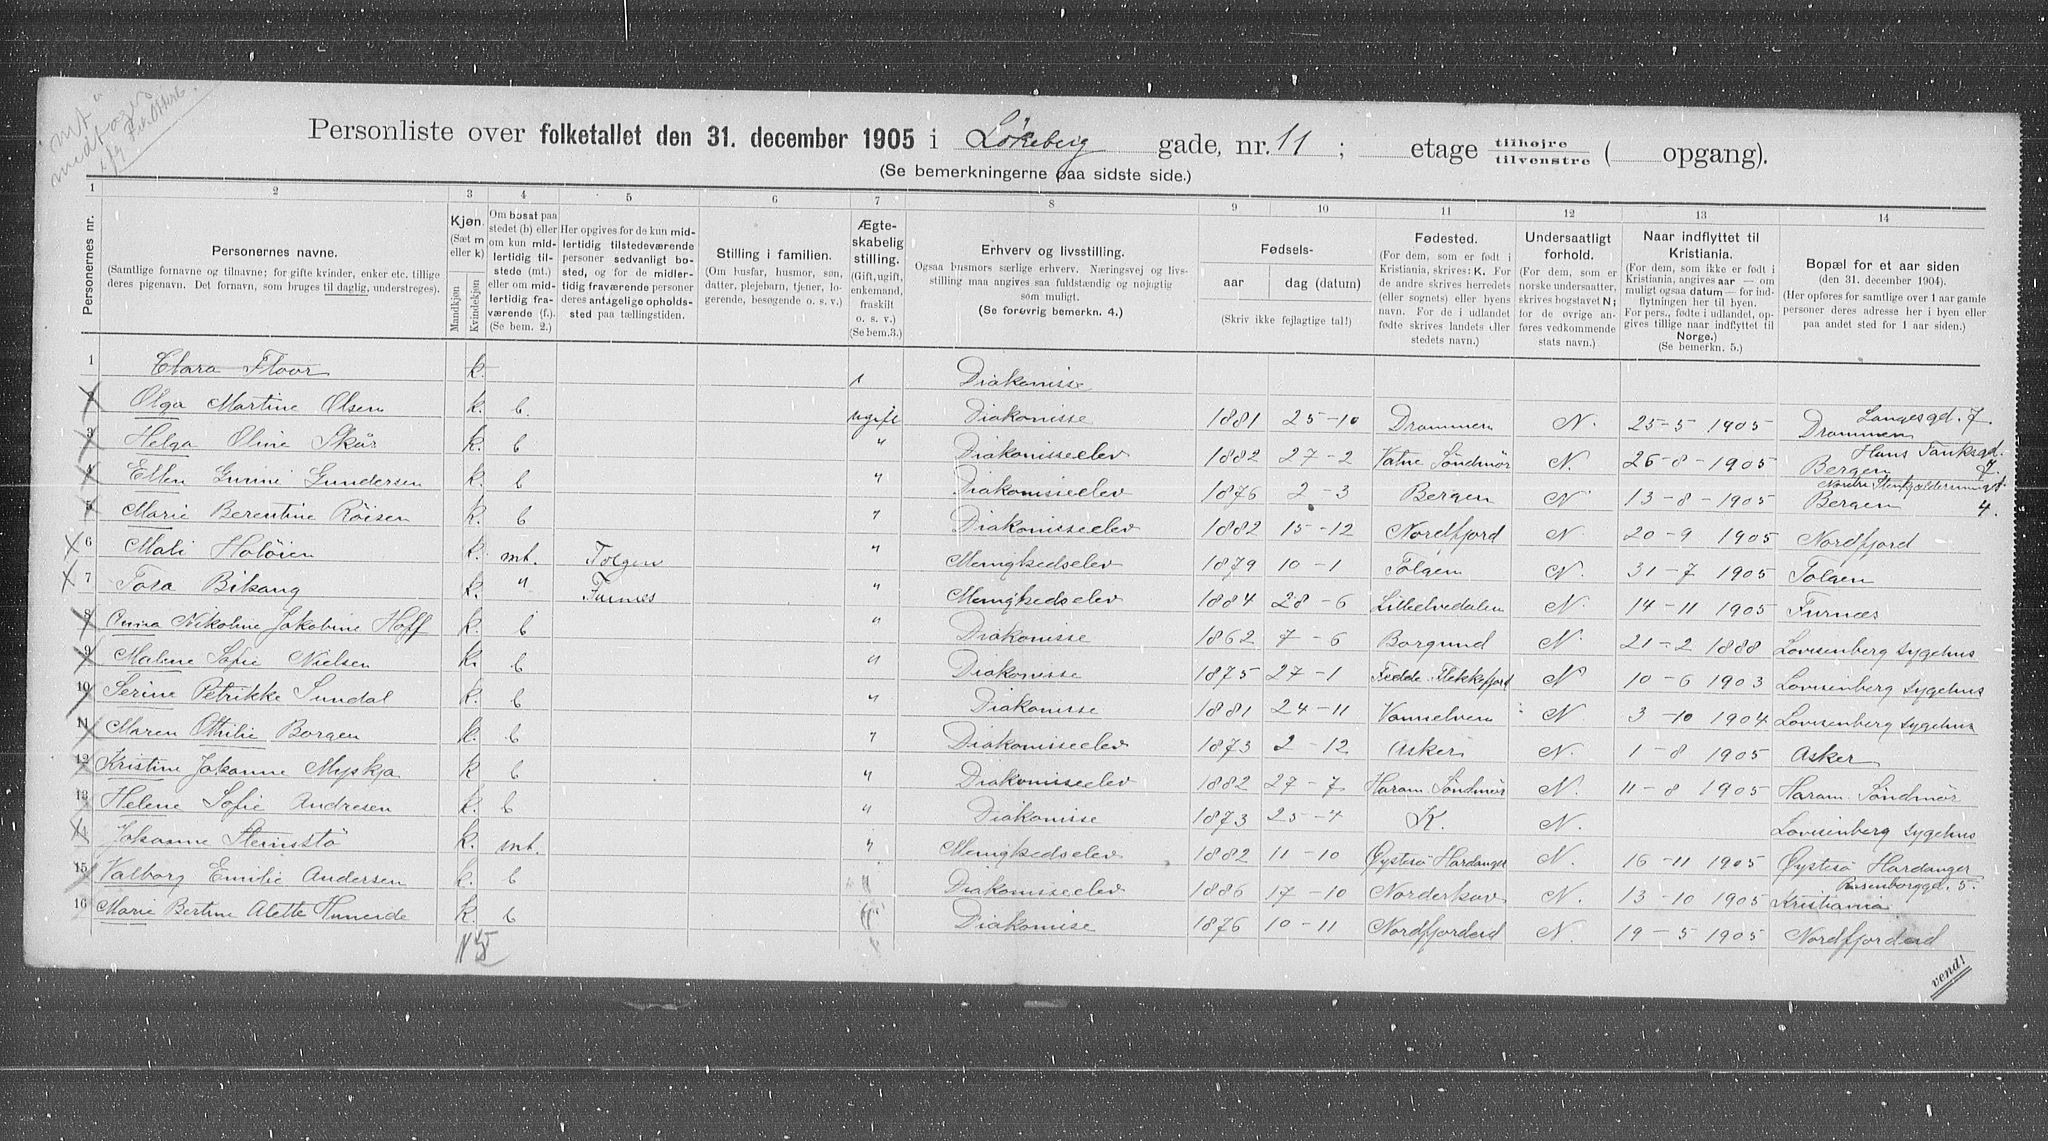 "mt"
medtages
Personliste over folketallet den 31. december 1905 i Løkeberg gade, nr. 11 ; etage tilhøjre tilvenstre ( opgang).
(Se bemerkningerne paa sidste side.)
1 2 3 4 5 6 7 8 9 10 11 12 13 14
Personernes nr.
Personernes navne.
(Samtlige fornavne og tilnavne; for gifte kvinder, enker etc. tillige
deres pigenavn. Det fornavn, som bruges til daglig, understreges).
Kjøn.
(Sæt m
eller k)
Mandkjøn
Kvindekjøn
Om bosat paa
stedet (b) eller
om kun mid-
lertidig til-
stede (mt.)
eller om mid-
lertidig fra-
værende (f.)
(Se bem. 2.)
Her opgives for de kun mid-
lertidig tilstedeværende
personer sedvanlig bo-
sted, og for de midler-
tidig fraværende personer
deres antagelige opholds-
sted paa tællingstiden.
Stilling i familien.
(Om husfar, husmor, søn,
datter, plejebarn, tjener, lo-
gerende, besøgende o. s. v.)
Ægte-
skabelig
stilling.
(Gift, ugift,
enkemand,
fraskilt
o. s. v.)
(Se bem.3.)
Erhverv og livsstilling.
Ogsaa husmors særlige erhverv. Næringsvej og livs-
stilling maa angives saa fuldstændig og nøjagtig
som muligt.
(Se forøvrig bemerkn. 4.)
Fødsels-
aar
dag (datum)
(Skriv ikke fejlagtige tal!)
Fødested.
(For dem, som er født i
Kristiania, skrives: K. For
de andre skrives herredets
(eller sognets) eller byens
navn. For de i udlandet
fødte skrives landets eller
stedets navn.)
Undersaatligt
forhold.
(For dem, som er
norske undersaatter,
skrives bogstavet N;
for de øvrige an-
føres vedkommende
stats navn.)
Naar indflyttet til
Kristiania.
(For dem, som ikke er født i
Kristiania, angives aar — om
muligt ogsaa datum — for ind-
flytningen her til byen.
For pers., fødte i udlandet, op-
gives tillige naar indflyttet til
Norge.)
(Se bemerkn. 5.)
Bopæl for et aar siden
(den 31. december 1904).
(Her opføres for samtlige over 1 aar gamle
personer deres adresse her i byen eller
paa andet sted for 1 aar siden.)
1 Clara Floor k. Diakonisse
2 Olga Martine Olsen k. b. ugift Diakonisse 1881 25-10 Drammen N. 25-5 1905 Langesgd. 7. Drammen
3 Helga Oline Skår k. b " Diakonisseelev 1882 27-2 Vatne Søndmør N. 26-8-1905 Hans Tanksgd. 7. Bergen
4 Ellen Gunni Gundersen k. b " Diakonisseelev 1876 2-3 Bergen N 13-8-1905 Bergen 4.
5 Marie Berentine Röisen k. b " Diakonisseelev 1882 15-12 Nordfjord N. 20-9 1905 Nordfjord
6 Mali Holöien k. mt. Tolgen " Menighedselev 1879 10-1 Tolgen N. 31-7 1905 Tolgen
7 Tora Biksang k. " Furnæs " Menighedselev 1884 28-6 Lilleelvedalen N. 14-11 1905 Furnæs
8 Anna Nikoline Jakobine Hoff k. b " Diakonisse 1862 7-6 Borgund N. 21-2 1888 Lovisenberg sygehus
9 Malene Sofie Nielsen k. b " Diakonisse 1875 27-1 Fedde Flekkefjord N 10-6 1903 Lovisenberg sygehus
10 Serine Petrikke Sundal k. b " Diakonisse 1881 24-11 Vanselven N. 3-10 1904 Lovisenberg sygehus
11 Maren Othilie Borgen k. b " Diakonisseelev 1873 2-12 Asker N. 1-8 1905 Asker
12 Kristine Johanne Myskja k b " Diakonisseelev 1882 27-7 Haram Søndmør N. 11-8 1905 Haram Søndmør
13 Helene Sofie Andresen k. b " Diakonisse 1873 25-4 K. N. Lovisenberg sygehus
14 Johanne Steinstø k. mt. " Menighedselev 1882 11-10 Øystesø Hardanger N. 16-11 1905 Øystesø Hardanger
15 Valborg Emilie Andersen k. b " Diakonisseelev 1886 17-10 Norderhov N. 13-10 1905 Rosenborggd. 5. Kristiania
16 Marie Bertine Alette Huneide k. b " Diakonisse 1876 10-11 Nordfjordeid N. 19-5 1905 Nordfjordeid
15
vend!